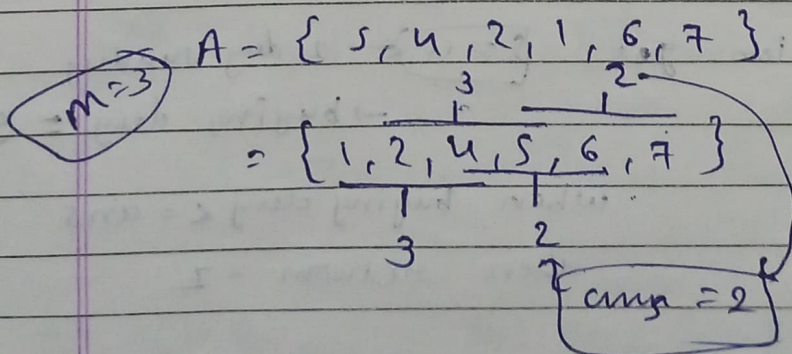 A = { 5, 4, 2, 1, 6, 7 }
m=3
3 2
= { 1, 2, 4, 5, 6, 7 }
3 2
ans = 2